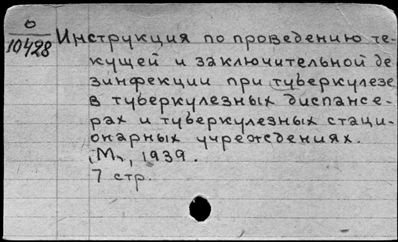 0
10428
Инструкция по проведению те-
кущей и заключительной де-
зинфекции при туберкулезе
в туберкулезных диспансе-
рах и туберкулезных стаци-
онарных учреждениях.
М., 1939.
7 стр.